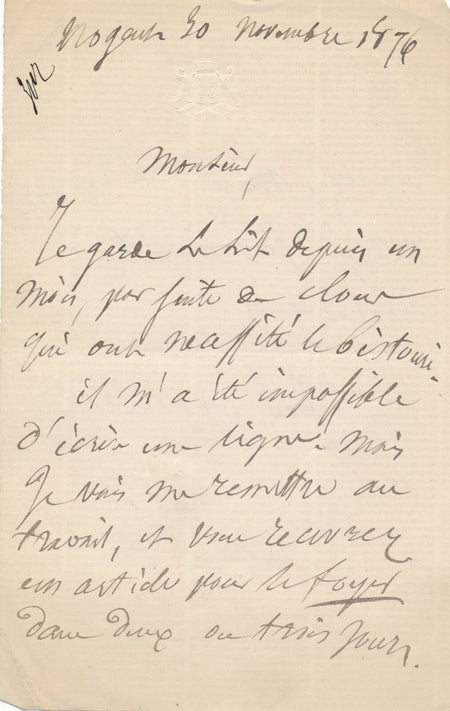 Nogent 30 novembre 1876
Monsieur,
Je garde le lit depuis un
mois, par suite de clous
qui ont necessité le bistouri.
il m'a été impossible
d'écrire une ligne. Mais
je vais me remettre au
travail, et vous recevrez
un article pour le foyer
dans deux ou trois jours.